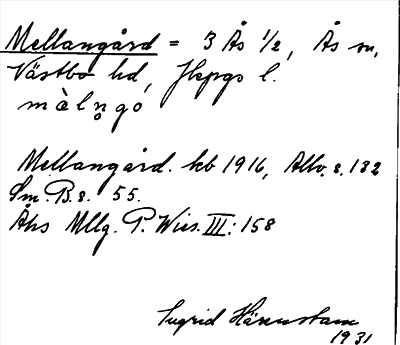 Mellangård = 3 Ås 1/2, Ås sn,
Västbo hd, Jkpgs l.
màlŋgó
Mellangård. kb 1916, Allv. s. 132
Sm. B. s. 55.
Åhs Mllg. P. Wies. III: 158
Ingrid
1931